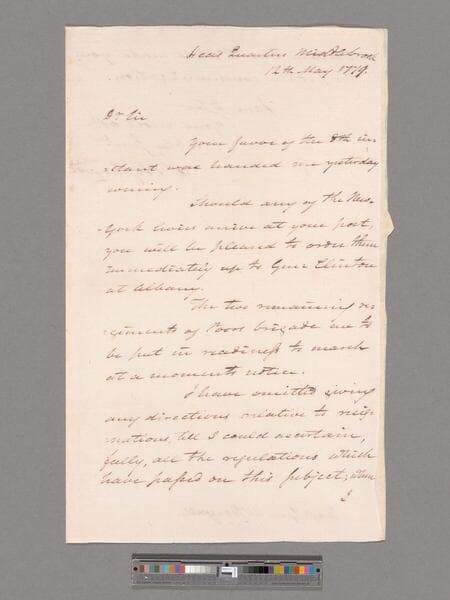 Head Quarters Middlebrook
12th May 1779.
Dr Sir
Your favor of the 8th in-
stant was handed me yesterday
evening.
Should any of the New-
York levies arrive at your post,
you will be pleased to order them
immediately up to Genl Clinton
at Albany.
The two remaining re
giments of Poors brigade are to
be put in readiness to march
at a moments notice.
I have omitted giving
any directions relative to resig
nations, till I could ascertain,
fully, all the regulations which
have passed on this subject; when
I